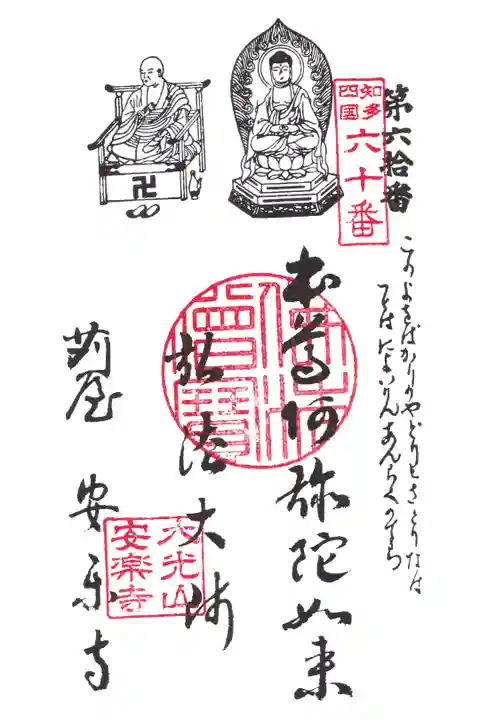 第六拾番
知多
四国
六十番
このよをばかりのやどりとさとりなは
あんらく
本尊阿弥陀如来
佛法
僧寶
弘法大師
大光山
安楽寺
苅屋 安楽寺
卍